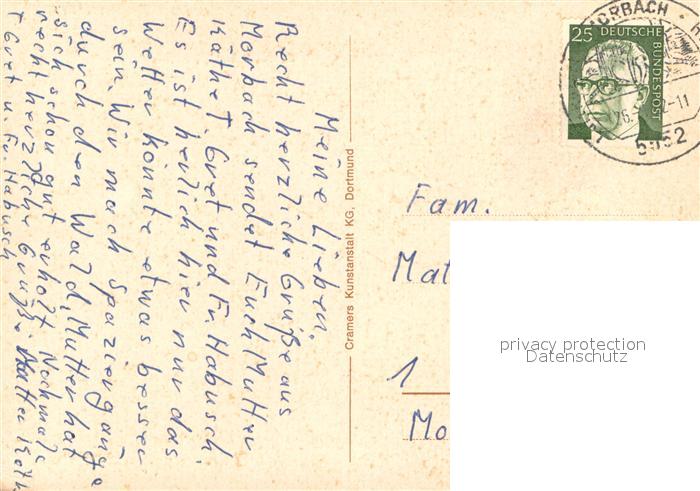 Meine Lieben,
Recht herzliche Grüße aus
Morbach sendet Euch Mutter
Käthe, Gret und Fr. Habusch.
Es ist herlich hier nur das
Wetter könnte etwas besser
sein. Wir mach Spaziergänge
durch den Wald, Mutter hat
sich schon gut erholt Nochmals
recht herzliche Grüße Mutter Käth.
+ Gret u. Fr. Habusch
Cramers Kunstanstalt KG, Dortmund
25 DEUTSCHE
BUNDESPOST
MORBACH
Fam.
Mat
1
Mo
privacy protection
Datenschutz